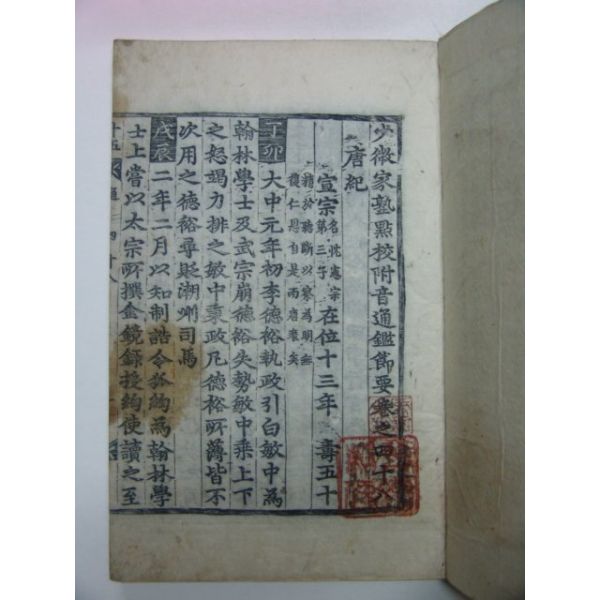 少微家塾點校附音通鑑節要卷之四十八
唐紀
宣宗 名忱憲宗第三子 在位十三年 壽五十
精於聽斷以察為明無復仁恩自是而唐衰矣
丁卯 大中元年初李德裕執政引白敏中為
翰林學士及武宗崩德裕失勢敏中乘上下
之怒竭力排之敏中秉政凡德裕所薄皆不
次用之德裕尋貶潮州司馬
戊辰 二年二月以知制誥令狐綯為翰林學
士上嘗以太宗所撰金鏡錄授綯使讀之至